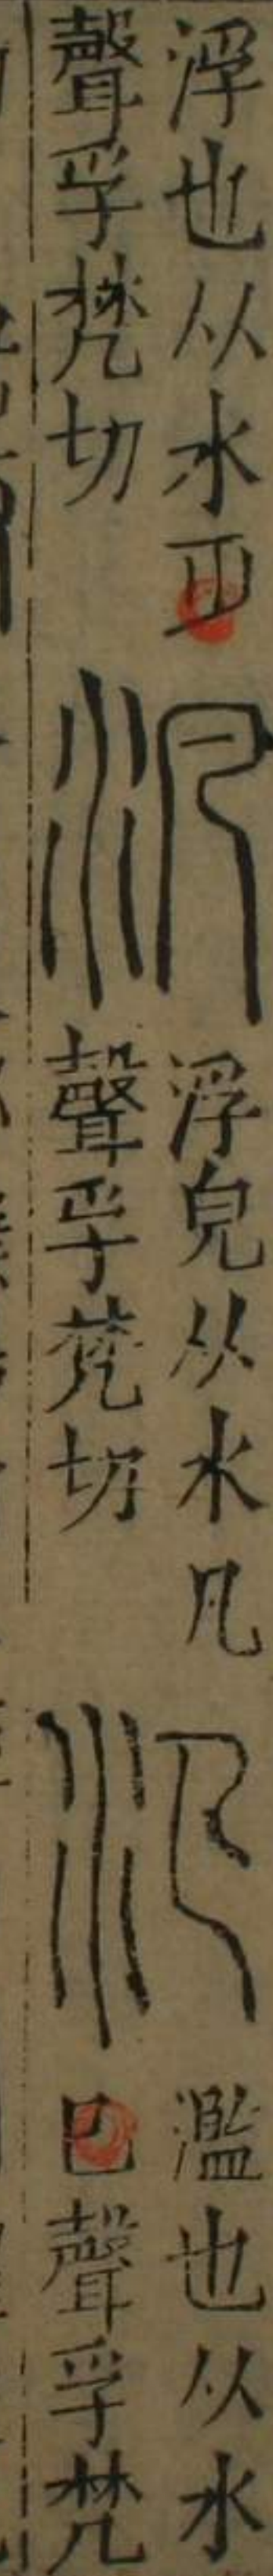 浮也从水
聲孚梵切
汎
浮皃从水凡
聲孚梵切
氾
濫也从水
巳聲孚梵